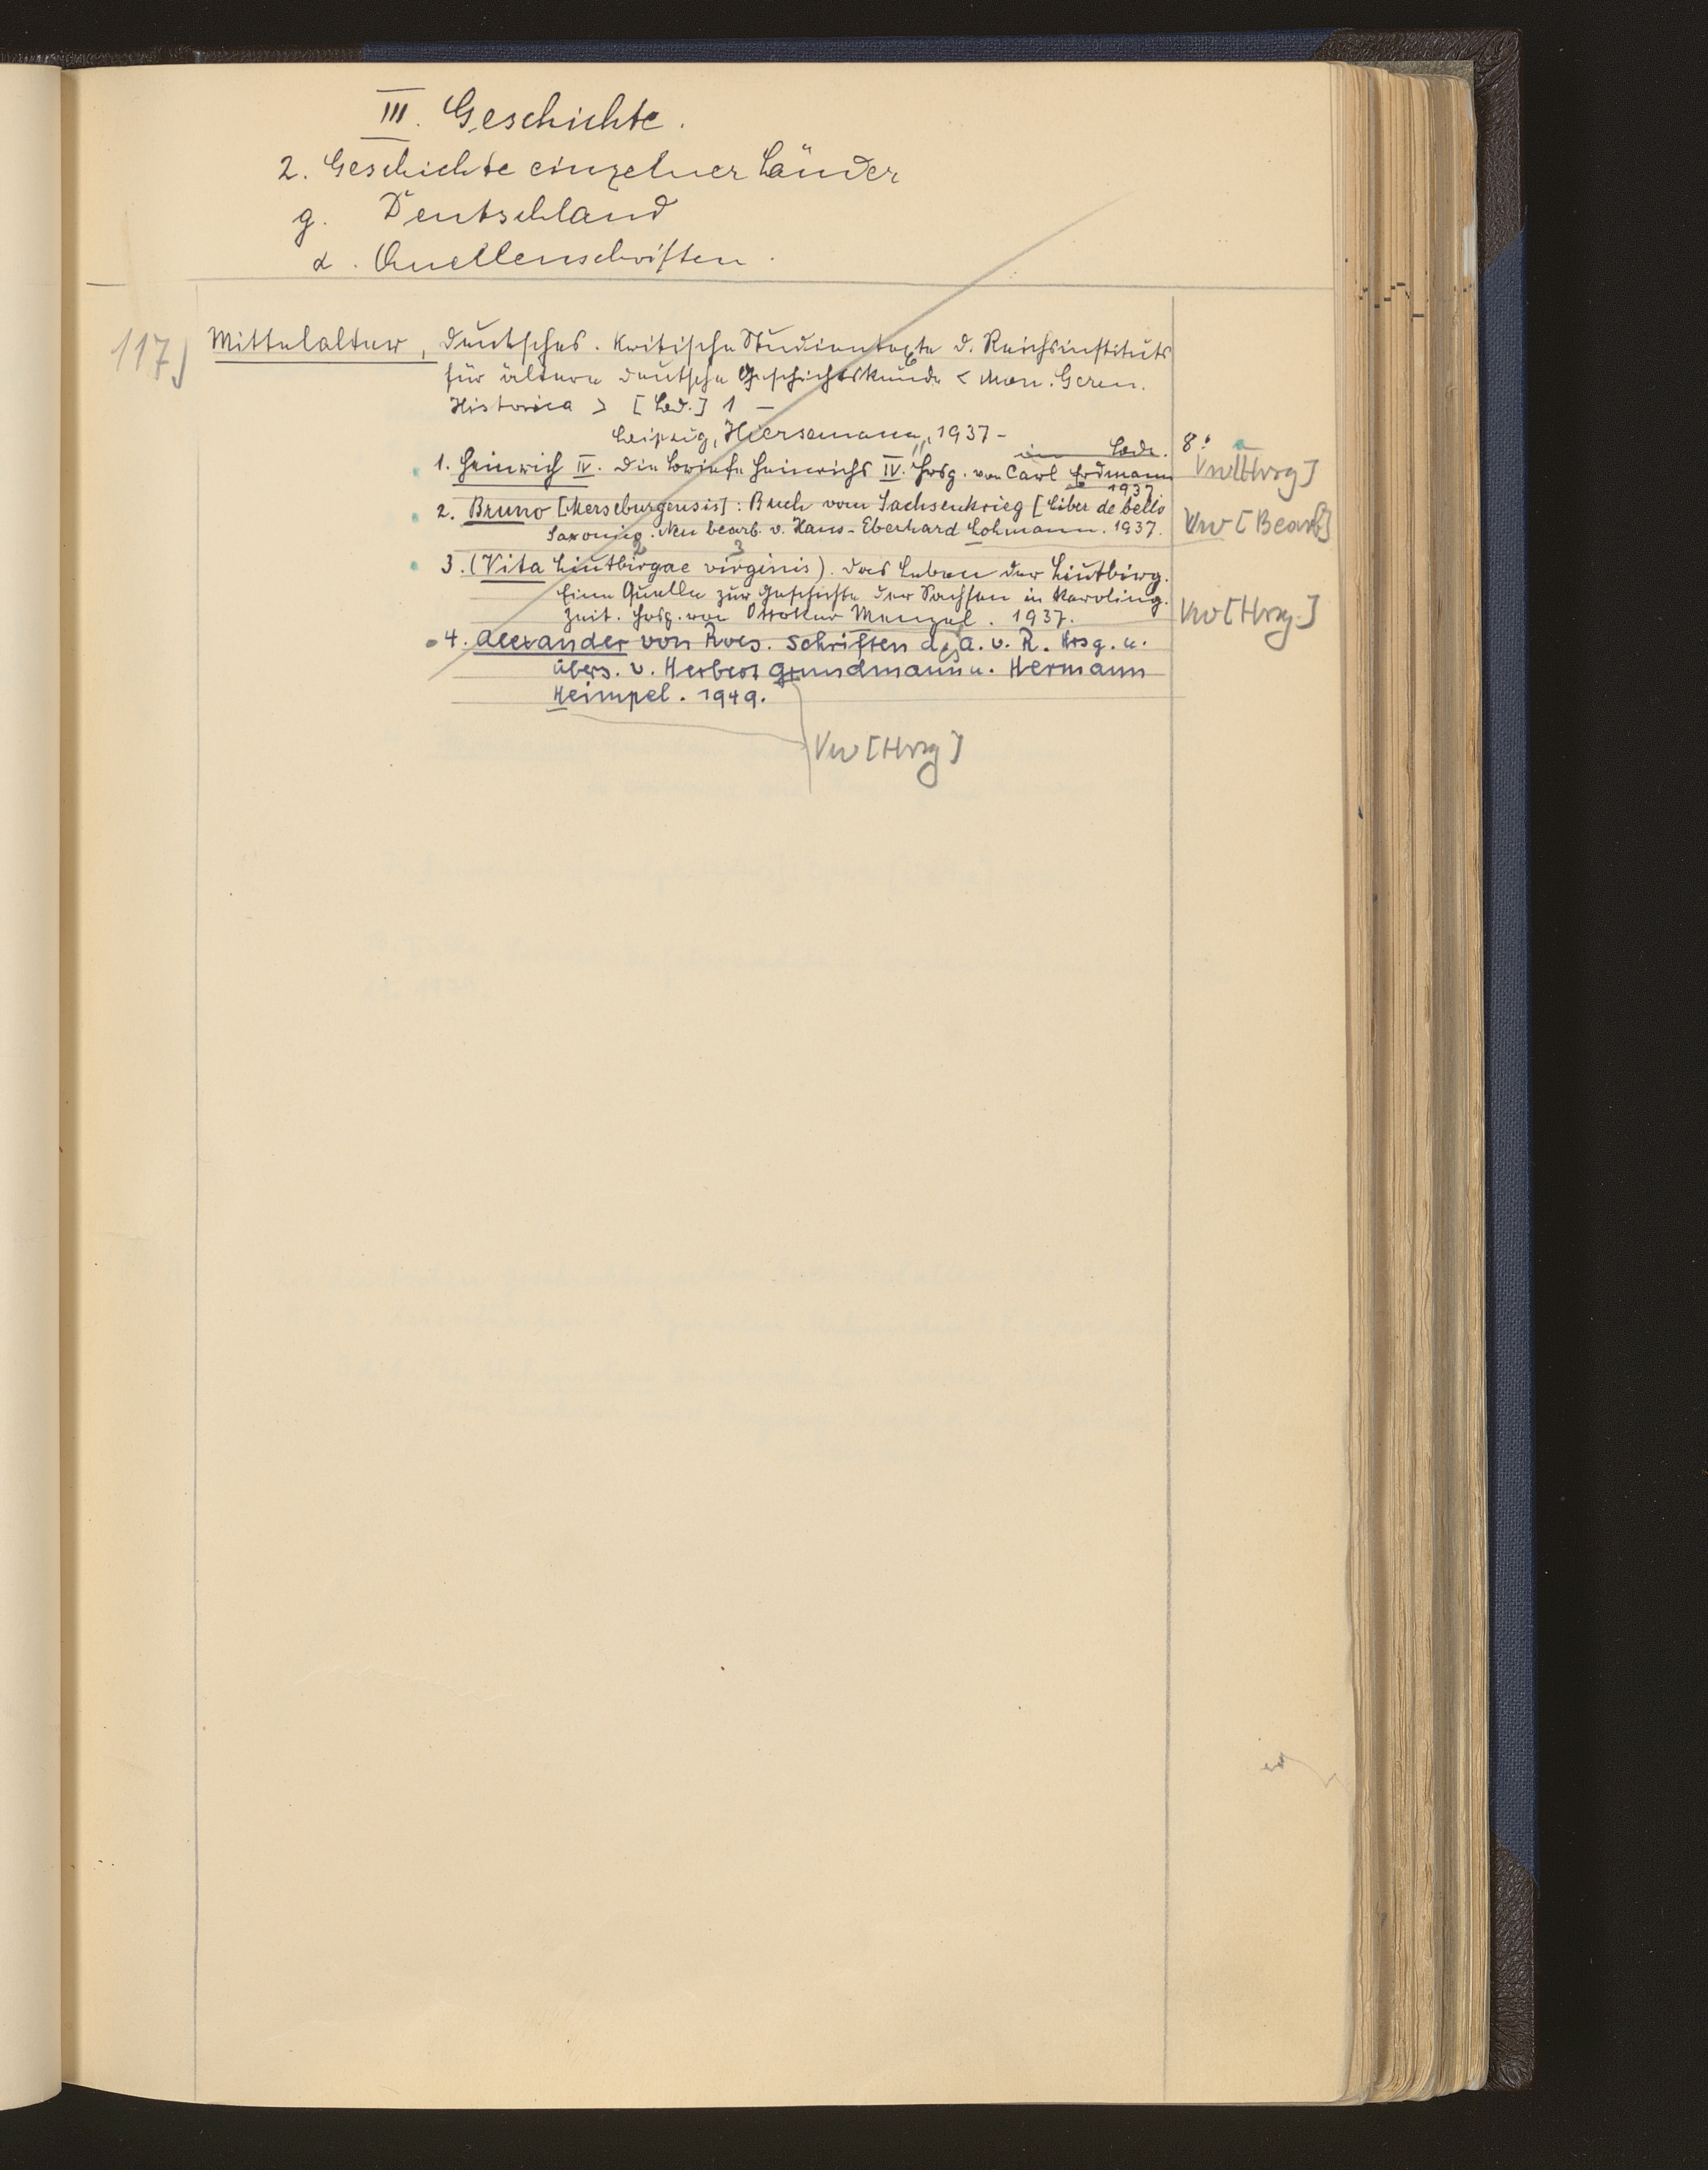 III. Geschichte.
2. Geschichte einzelner Länder
g. Deutschland
α. Quellenschriften.
117) Mittelalter, deutsches. Kritische Studientexte d. Reichsinstituts
für ältere deutsche Geschichtskunde < Mon. Germ.
Historica > [Bd.] 1 –
Leipzig, Hiersemann, 1937–
Bde. 8°
1. Heinrich IV. Die Briefe Heinrichs IV. Hrsg. von Carl Erdmann Vw [Hrsg]
1937
2. Bruno [Merseburgensis]: Buch vom Sachsenkrieg [Liber de bello
Saxonic. Neu bearb. v. Hans-Eberhard Lohmann. 1937. Vw [Bearb]
2 3
3. (Vita Liutbirgae virginis). Das Leben der Liutbirg.
Eine Quelle zur Geschichte der Sachsen in karoling.
Zeit. Hrsg. von Ottokar Menzel. 1937. Vw [Hrsg.]
4. Alexander von Roes. Schriften d. A. v. R. Hrsg. u.
übers. v. Herbert Grundmann u. Hermann
Heimpel. 1949.
Vw [Hrsg]